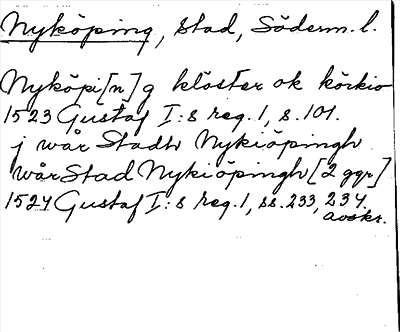 Nyköping, stad, Söderm. l.
Nyköpi[n]g klöster ok körkio
1523 Gustaf I:s reg. 1, s. 101.
j wår Stadh Nykiöpingh
wår Stad Nykiöpingh [2 ggr]
1524 Gustaf I:s reg. 1, ss. 233, 234.
avskr.